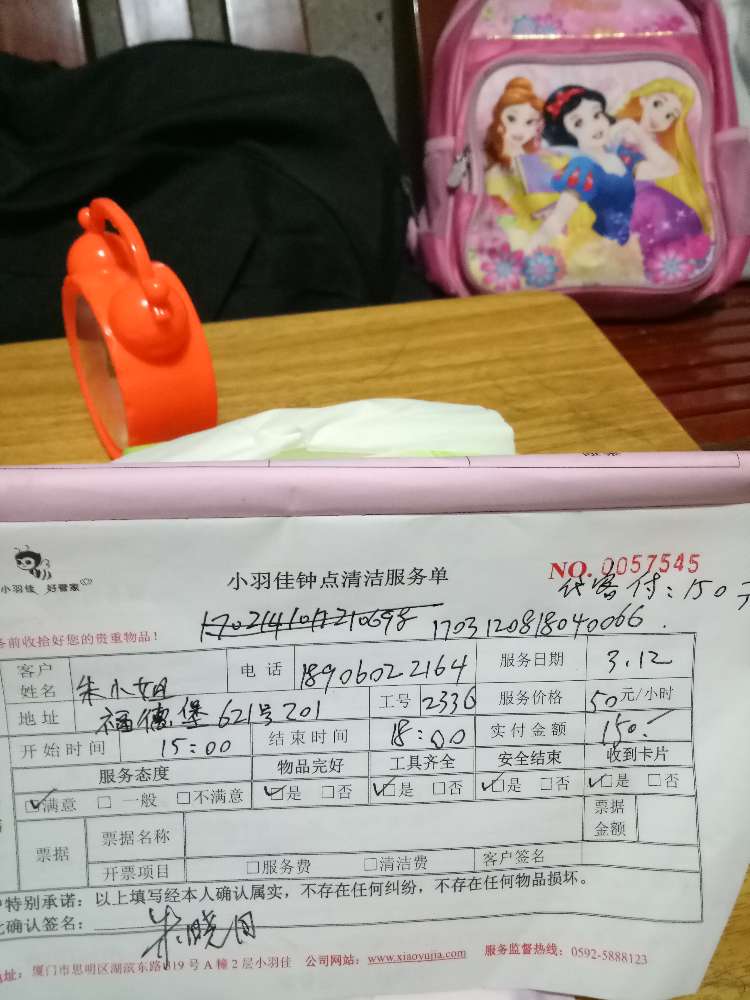 小羽佳 好管家
小羽佳钟点清洁服务单
NO. 0057545
代客付：150元
1703120818040066.
前收拾好您的贵重物品！
客户姓名 朱小姐 电话 18906022164 服务日期 3.12
地址 福德堡621号201 工号 2336 服务价格 50元/小时
开始时间 15:00 结束时间 18:00 实付金额 150.-
服务态度 物品完好 工具齐全 安全结束 收到卡片
☑满意 □一般 □不满意 ☑是 □否 ☑是 □否 ☑是 □否 ☑是 □否
票据 票据名称 票据金额
开票项目 □服务费 □清洁费 客户签名
特别承诺：以上填写经本人确认属实，不存在任何纠纷，不存在任何物品损坏。
确认签名：
址：厦门市思明区湖滨东路319号A幢2层小羽佳 公司网站：www.xiaoyujia.com 服务监督热线：0592-5888123